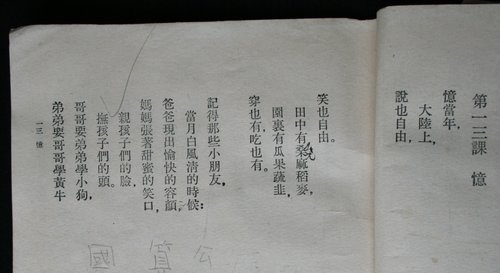 第一三課 憶
憶當年，
大陸上，
說也自由，
笑也自由。
田中有桑麻稻麥，
園裏有瓜果蔬韭，
穿也有，吃也有。
記得那些小朋友，
當月白風清的時候：
爸爸現出愉快的容顏，
媽媽張著甜蜜的笑口，
親孩子們的臉，
撫孩子們的頭。
哥哥要弟弟學小狗，
弟弟要哥哥學黃牛
一三 憶
國算公